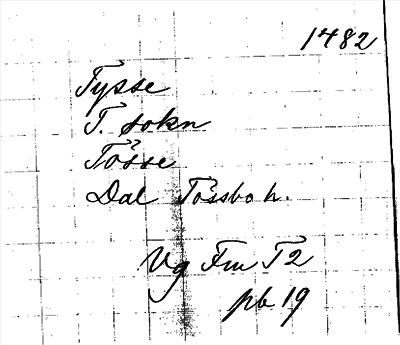 1482
Tysse
T. sokn
Tösse
Dal Tössbo h.
Vg Fm T2
pb 19